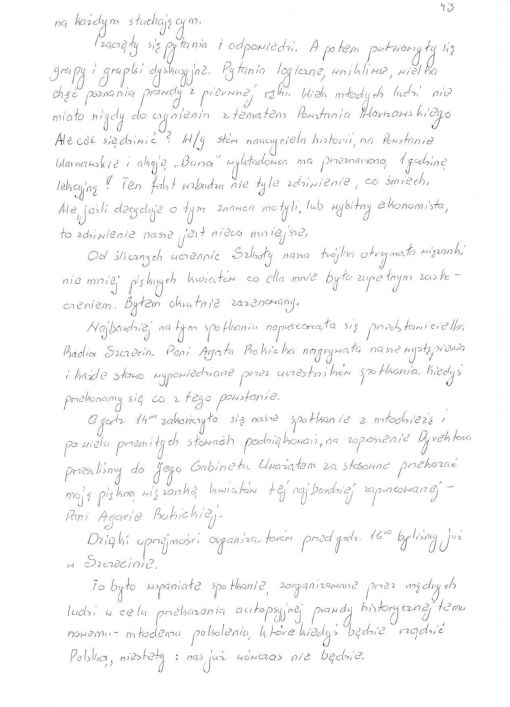 43
na każdym słuchającym.
I zaczęły się pytania i odpowiedzi. A potem potworzyły się
grupy i grupki dyskusyjne. Pytania logiczne, wnikliwe, wielka
chęć poznania prawdy z pierwszej ręki. Wielu młodych ludzi nie
miało nigdy do czynienia z tematem Powstania Warszawskiego
Ale cóż się dziwić? W/g słów nauczyciela historii, na Powstanie
Warszawskie i akcję „Burza" wykładowca ma przeznaczoną 1 godzinę
lekcyjną! Ten fakt wzbudza nie tyle zdziwienie, co śmiech.
Ale, jeśli decyduje o tym znawca motyli, lub wybitny ekonomista,
to zdziwienie nasze jest nieco mniejsze,
Od ślicznych uczennic Szkoły nasza trójka otrzymała wiązanki
nie mniej pięknych kwiatów co dla mnie było zupełnym zasko-
czeniem. Byłem okrutnie zażenowany.
Najbardziej na tym spotkaniu napracowała się przedstawicielka
Radia Szczecin. Pani Agata Rokicka nagrywała nasze wystąpienia
i każde słowo wypowiedziane przez uczestników spotkania. Kiedyś
przekonamy się co z tego powstanie.
O godz. 14⁰⁰ zakończyło się nasze spotkanie z młodzieżą i
po wielu przemiłych słowach podziękowań, na zaproszenie Dyrektora
przeszliśmy do Jego Gabinetu. Uważałem za stosowne przekazać
moją piękną wiązankę kwiatów tej najbardziej zapracowanej –
Pani Agacie Rokickiej.
Dzięki uprzejmości organizatorów przed godz. 16⁰⁰ byliśmy już
w Szczecinie.
To było wspaniałe spotkanie, zorganizowane przez mądrych
ludzi w celu przekazania autopsyjnej prawdy historycznej temu
nowemu - młodemu pokoleniu, które kiedyś będzie rządzić
Polską, niestety : nas już wówczas nie będzie.